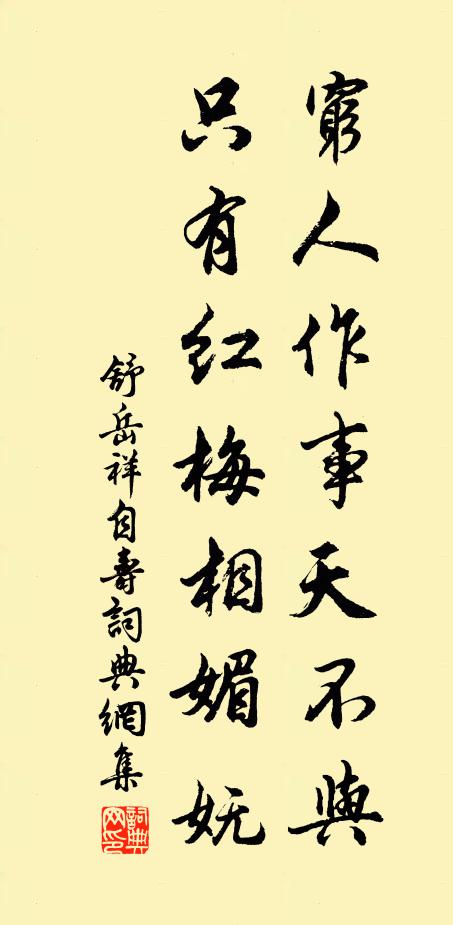 窮人作事天不與
只有红梅相媚妩
舒岳祥自壽詞典網集
詞典网印